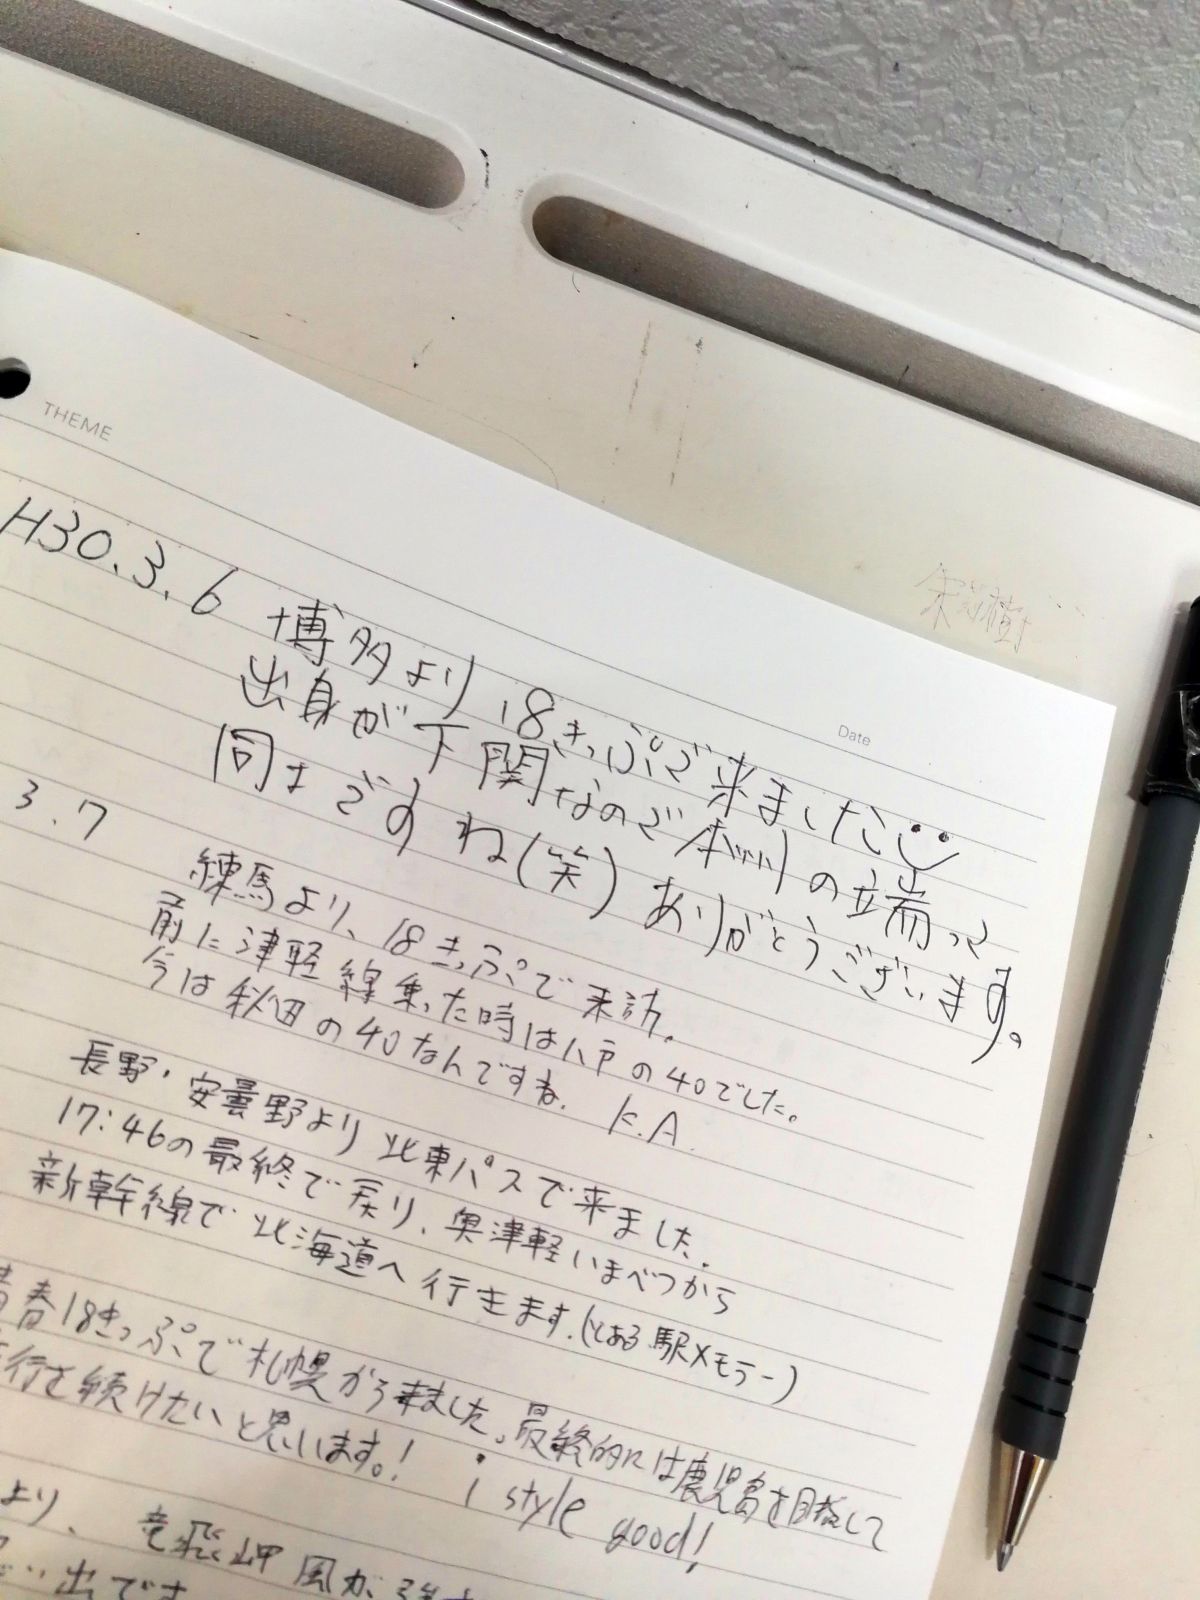 THEME
Date
H30.3.6 博多より 18きっぷで来ました
出身が下関なので本州の端って
同じですね(笑) ありがとうございます。
3.7
練馬より、18きっぷで来訪。
前に津軽線乗った時は八戸の40でした。
今は秋田の40なんですね. K.A.
長野・安曇野より北東パスで来ました.
17:46の最終で戻り、奥津軽いまべつから
新幹線で北海道へ行きます.(とある駅メモラー)
青春18きっぷで札幌から来ました。最終的には鹿児島を目指して
行を続けたいと思います。! i style good!
より、竜飛岬 風が
出です